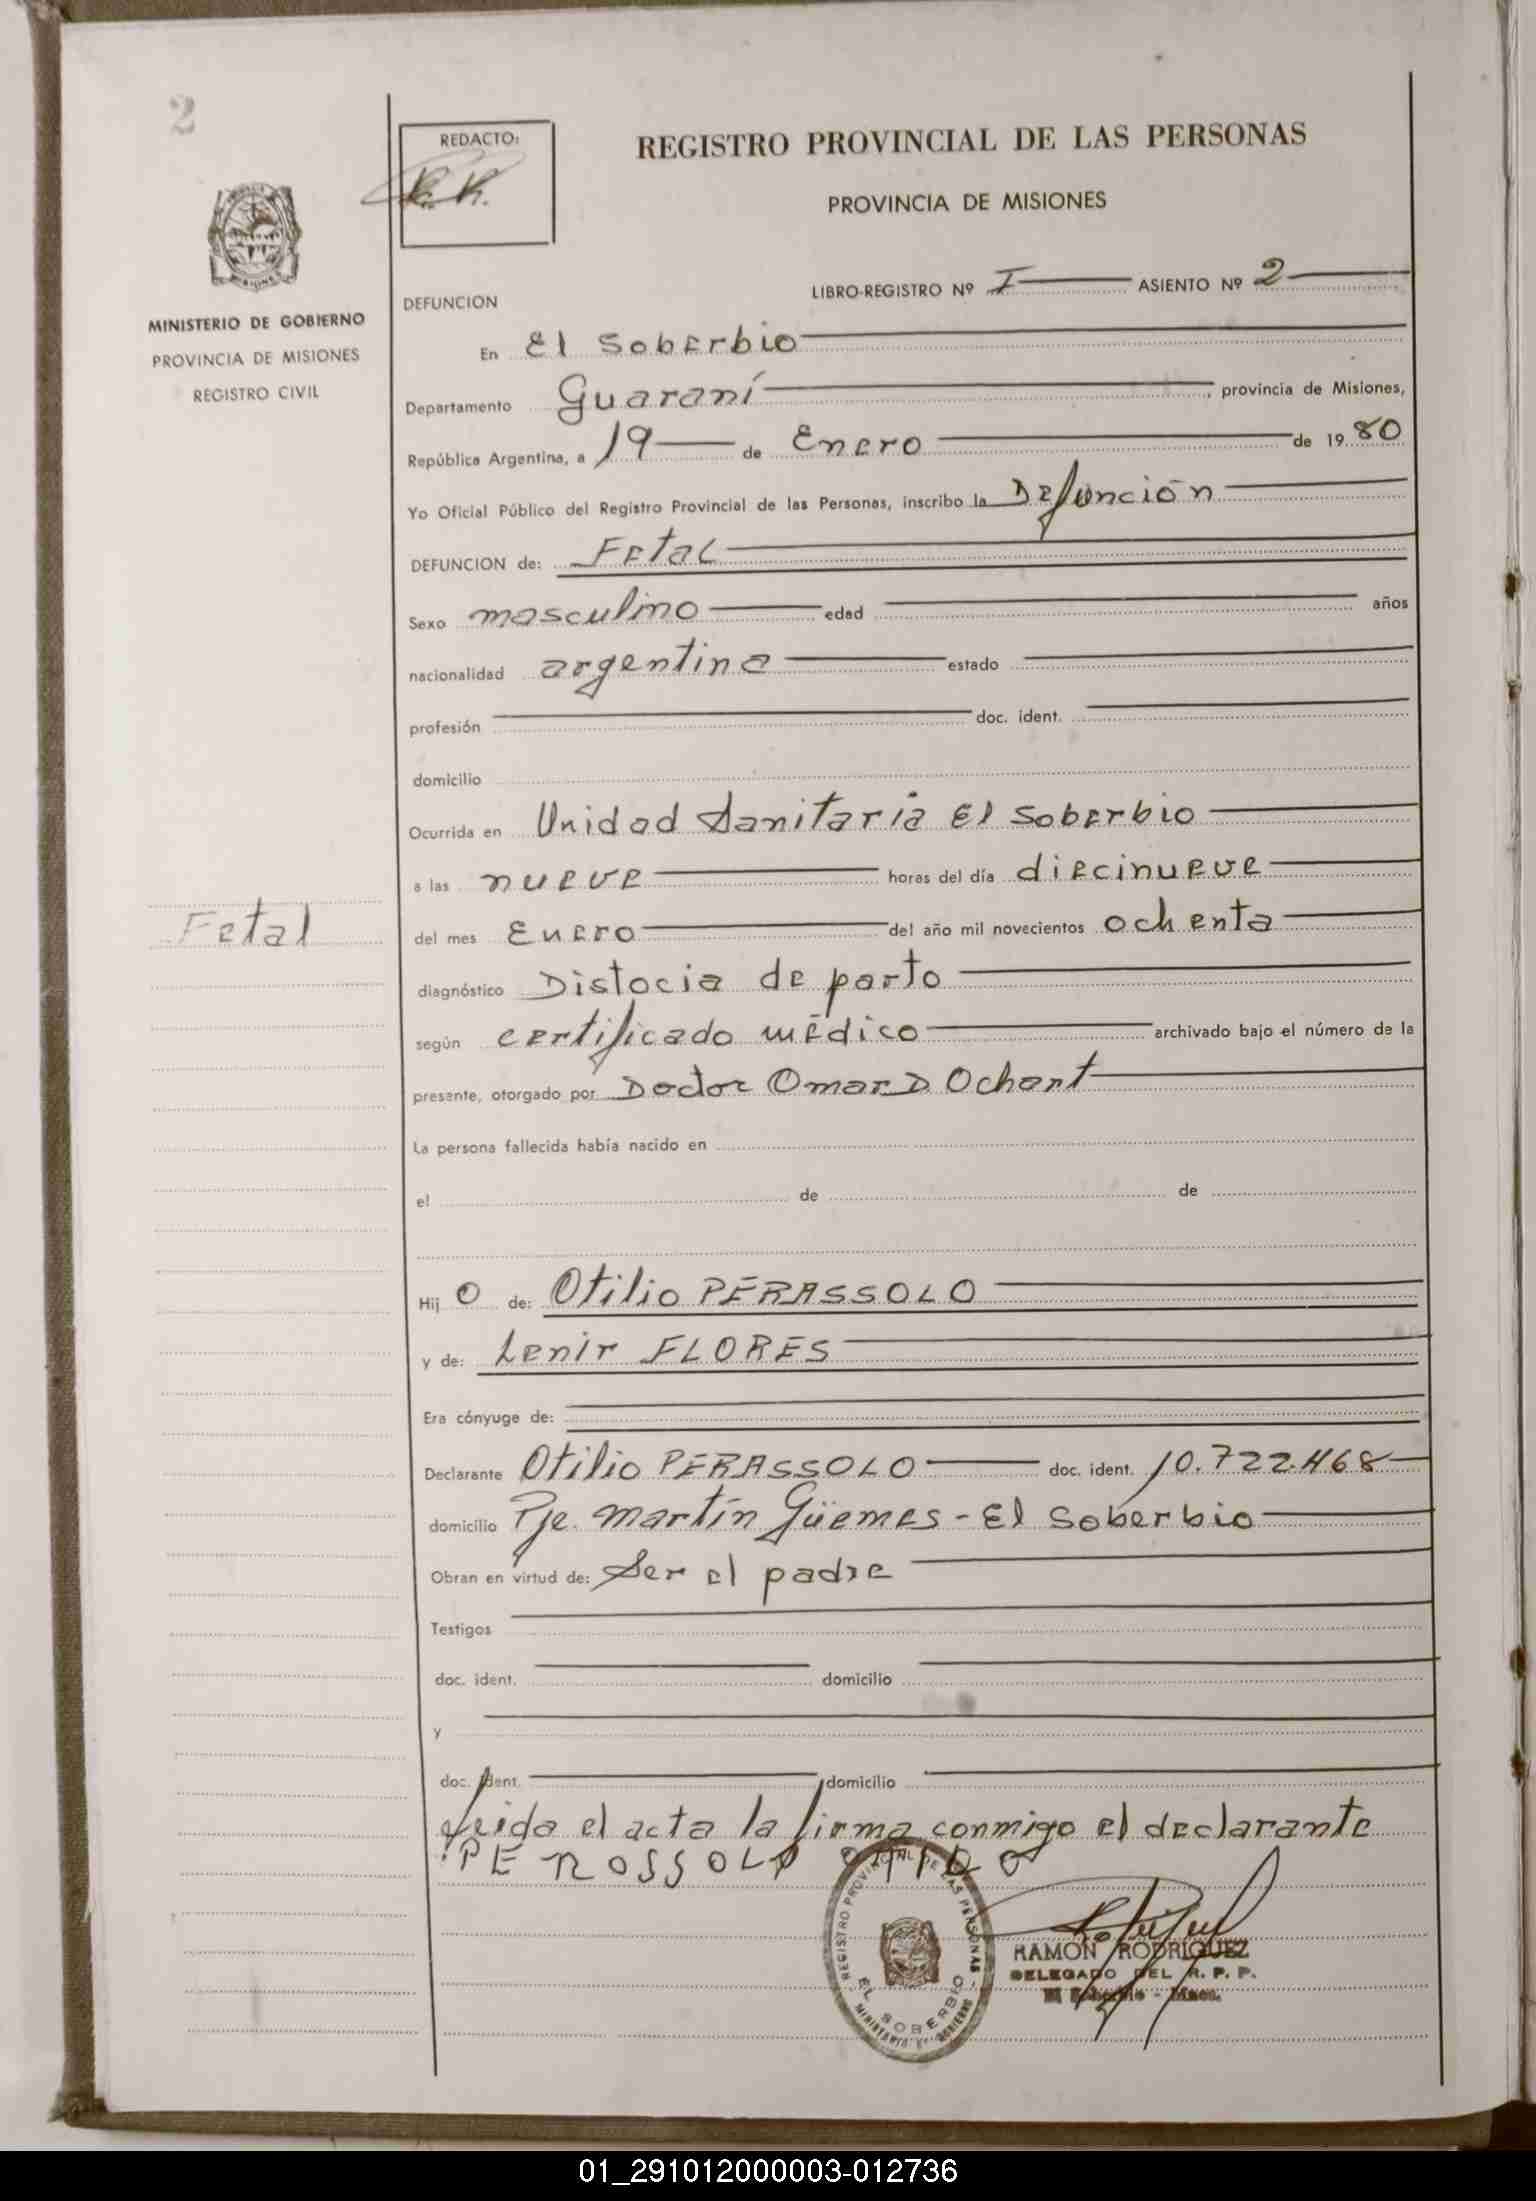 2
REDACTO:
R. R.
REGISTRO PROVINCIAL DE LAS PERSONAS
PROVINCIA DE MISIONES
MINISTERIO DE GOBIERNO
PROVINCIA DE MISIONES
REGISTRO CIVIL
LIBRO-REGISTRO Nº I ASIENTO Nº 2
DEFUNCION
En El Soberbio
Departamento Guaraní, provincia de Misiones,
República Argentina, a 19 de Enero de 1980
Yo Oficial Público del Registro Provincial de las Personas, inscribo la Defunción
DEFUNCION de: Fetal
Sexo masculino edad años
nacionalidad argentina estado
profesión doc. ident.
domicilio
Ocurrida en Unidad Sanitaria El Soberbio
a las nueve horas del día diecinueve
Fetal
del mes Enero del año mil novecientos ochenta
diagnóstico Distocia de parto
según certificado médico archivado bajo el número de la
presente, otorgado por Doctor Omar D Ochant
La persona fallecida había nacido en
el de de
Hij o de: Otilio PERASSOLO
y de: Lenir FLORES
Era cónyuge de:
Declarante Otilio PERASSOLO doc. ident. 10.722.468
domicilio Pje. Martín Güemes - El Soberbio
Obran en virtud de: Ser el padre
Testigos
doc. ident. domicilio
y
doc. ident. domicilio
Leida el acta la firma conmigo el declarante
PEROSSOLO OTILO
REGISTRO PROVINCIAL DE LAS PERSONAS
EL SOBERBIO
MINISTERIO DE GOBIERNO
RAMON RODRIGUEZ
DELEGADO DEL R. P. P.
El Soberbio - Mnes.
01_291012000003-012736